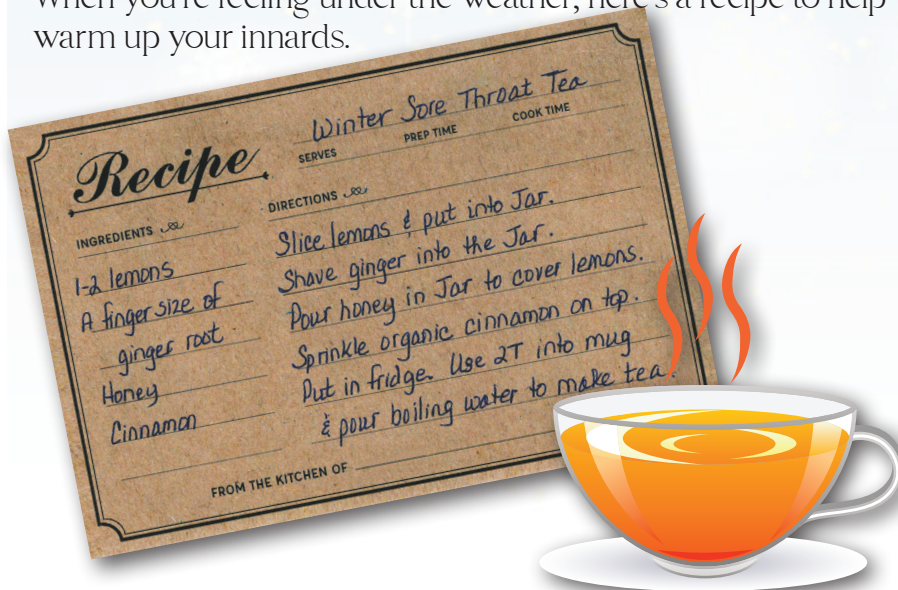 When you're feeling under the weather, here's a recipe to help
warm up your innards.
Recipe
Winter Sore Throat Tea
SERVES PREP TIME COOK TIME
INGREDIENTS
1-2 lemons
A finger size of
ginger root
Honey
Cinnamon
DIRECTIONS
Slice lemons & put into Jar.
Shave ginger into the Jar.
Pour honey in Jar to cover lemons.
Sprinkle organic cinnamon on top.
Put in fridge. Use 2T into mug
& pour boiling water to make tea.
FROM THE KITCHEN OF